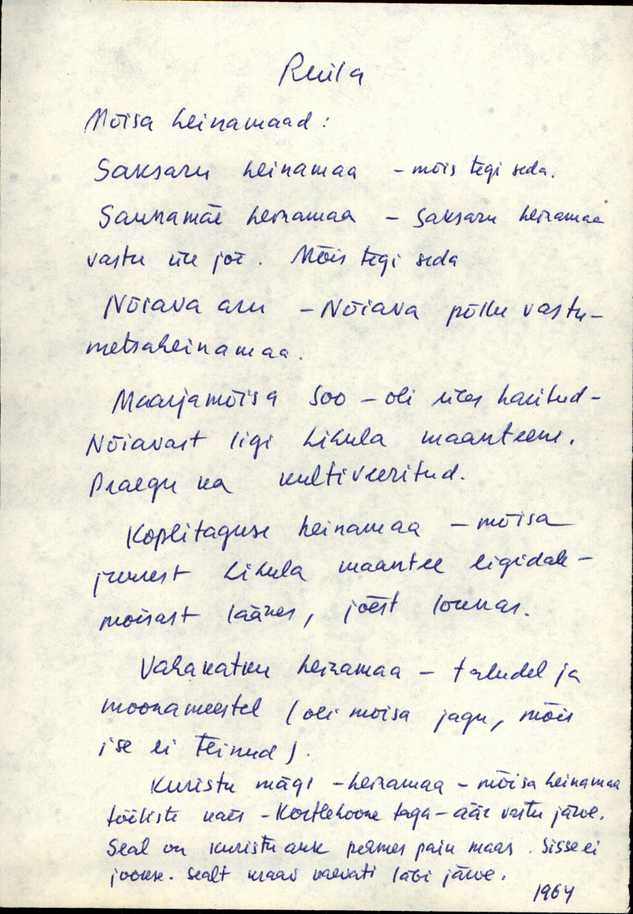 Ruila
Mõisa heinamaad:
Saksaru heinamaa – mõis tegi seda.
Saunamäe heinamaa – Saksaru heinamaa
vastu üle jõe. Mõis tegi seda
Nõiava aru – Nõiava põllu vastu –
metsaheinamaa.
Maarjamõisa soo – oli üles haritud –
Nõiavast ligi Lihula maanteeni.
Praegu ka kultiveeritud.
Koplitaguse heinamaa – mõisa
juurest Lihula maantee ligidale –
mõisast läänes, jõest lõunas.
Vahakatku heinamaa – taludel ja
moonameestel (oli mõisa jagu, mõis
ise ei teinud).
Kuristu mägi – heinamaa – mõisa heinamaa
tööliste käes – taga – äär vastu jõive.
Seal on kuristu auk paas maas. Sisse ei
jookse. Sealt kraav kaevati läbi
1964